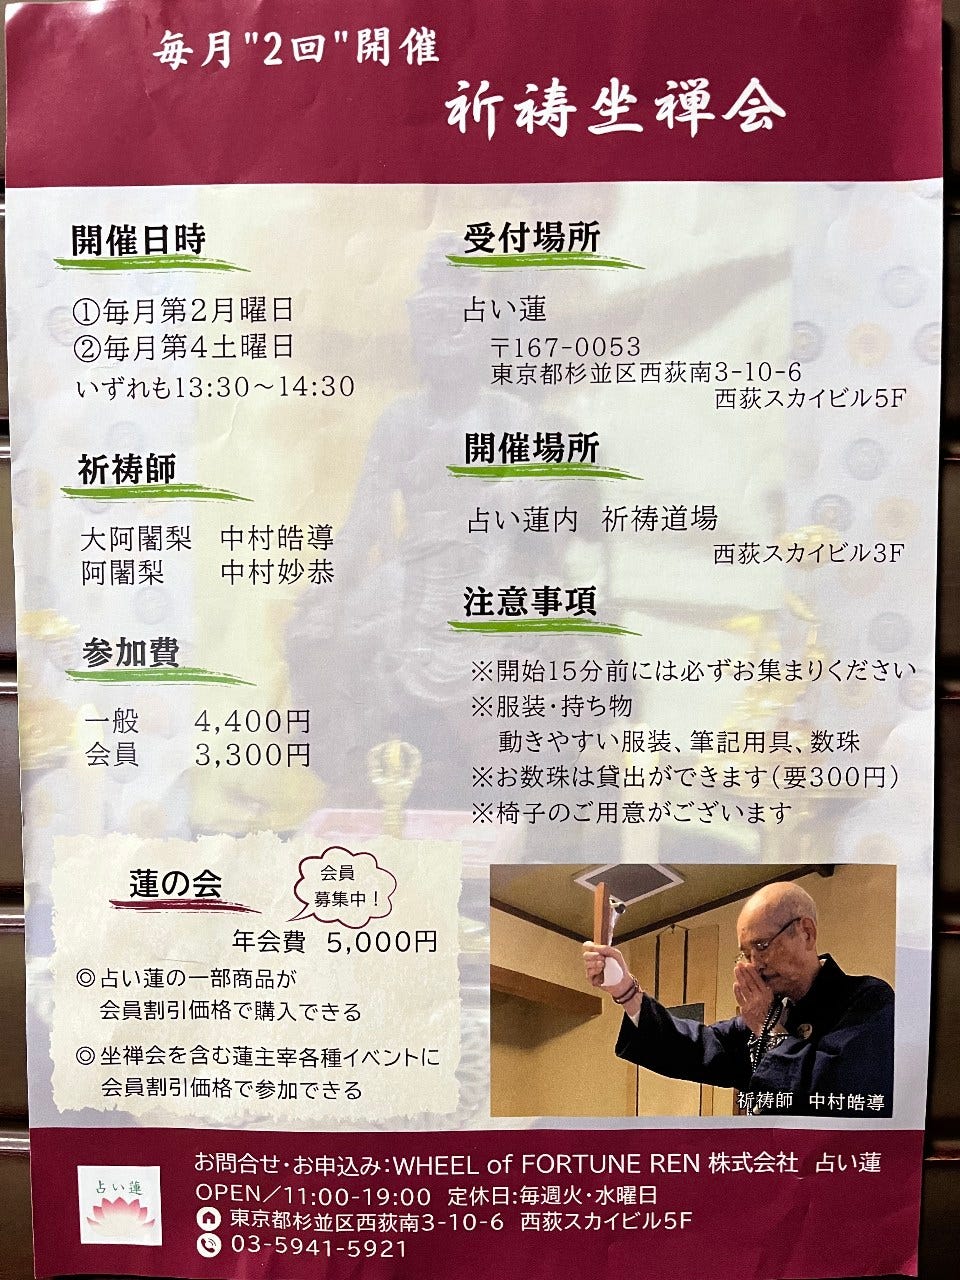 毎月"2回"開催
祈祷坐禅会
開催日時
①毎月第2月曜日
②毎月第4土曜日
いずれも13:30〜14:30
祈祷師
大阿闍梨 中村皓導
阿闍梨 中村妙恭
参加費
一般 4,400円
会員 3,300円
受付場所
占い蓮
〒167-0053
東京都杉並区西荻南3-10-6
西荻スカイビル5F
開催場所
占い蓮内 祈祷道場
西荻スカイビル3F
注意事項
※開始15分前には必ずお集まりください
※服装・持ち物
動きやすい服装、筆記用具、数珠
※お数珠は貸出ができます(要300円)
※椅子のご用意がございます
蓮の会
会員
募集中!
年会費 5,000円
◎占い蓮の一部商品が
会員割引価格で購入できる
◎坐禅会を含む蓮主宰各種イベントに
会員割引価格で参加できる
祈祷師 中村皓導
占い蓮
お問合せ・お申込み:WHEEL of FORTUNE REN 株式会社 占い蓮
OPEN/11:00-19:00 定休日:毎週火・水曜日
東京都杉並区西荻南3-10-6 西荻スカイビル5F
03-5941-5921